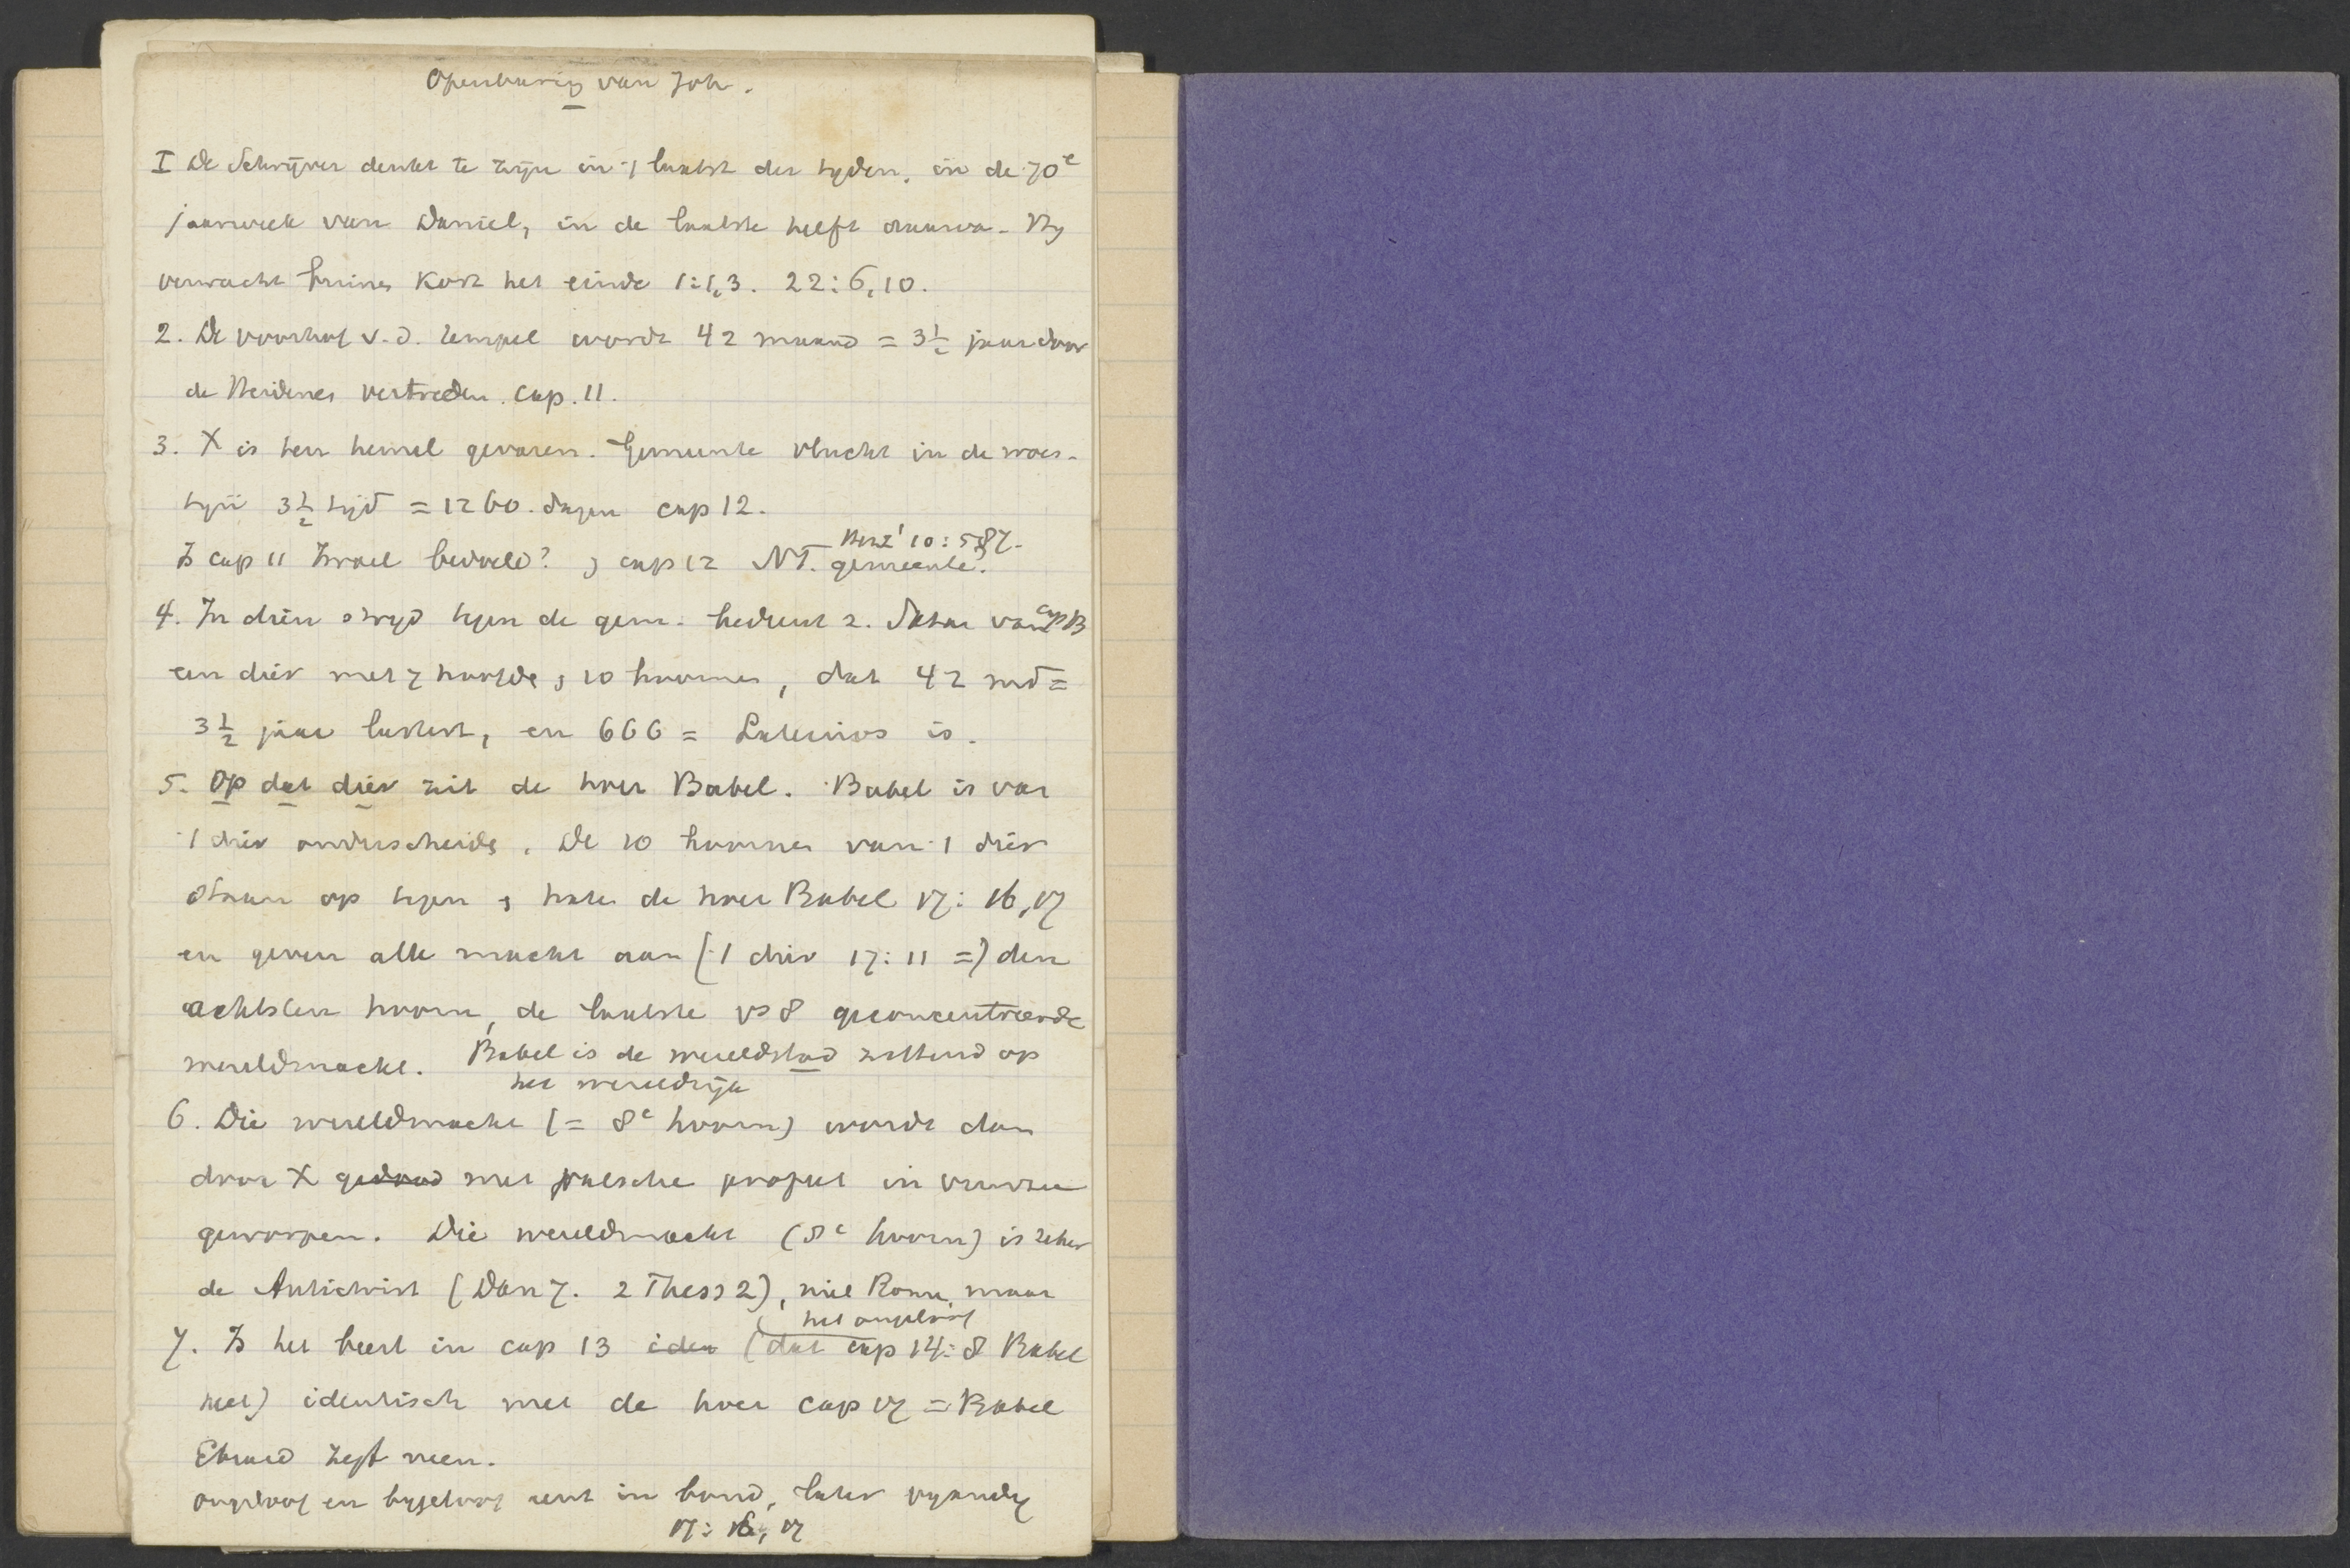 Openbaring van Joh.
I De Schrijver denkt te zijn in 't laatst der tyden, in de 70e
jaarweek van Daniel, in de laatste helft daarva. Hy
verwacht binnen kort het einde 1:1,3. 22:6,10.
2. De voorhof v.d. tempel wordt 42 maand = 3½ jaar door
de Heidenen vertreden. cap. 11.
3. X is ten hemel gevaren. Gemeente vlucht in de woes-
tyn 3½ tijd = 1260 dagen cap 12.
Is cap 11 Israel bedoeld? , cap 12 NT. gemeente?
4. In dien stryd tegen de gem. bedient z. Satan van cap 13
een dier met 7 hoofde, 10 hoornen, dat 42 md =
3½ jaar lastert, en 666 = Lateinos is.
5. Op dat dier zit de hoer Babel. Babel is van
't dier onderscheide. De 10 hoornen van 't dier
staan op tegen , hate de hoer Babel 17: 16,17
en geven alle macht aan ('t dier 17:11 =) den
achtsten hoorn, de laatste vs 8 geconcentreerde
wereldmacht. Babel is de wereldstad zittend op
het wereldrijk
6. Die wereldmacht (= 8e hoorn) wordt dan
door X gedood met valsche profeet in vuurzee
geworpen. Die wereldmacht (8e hoorn) is zeker
de Antichrist (Dan 7. 2 Thess 2), niet Rome, maar
het ongeloof
7. Is het beest in cap 13 iden (dat cap 14:8 Babel
heet) identisch met de hoer cap 17 = Babel
Ebrard zegt neen.
ongeloof en bygeloof eerst in bond, later vyandig
17: 16, 17